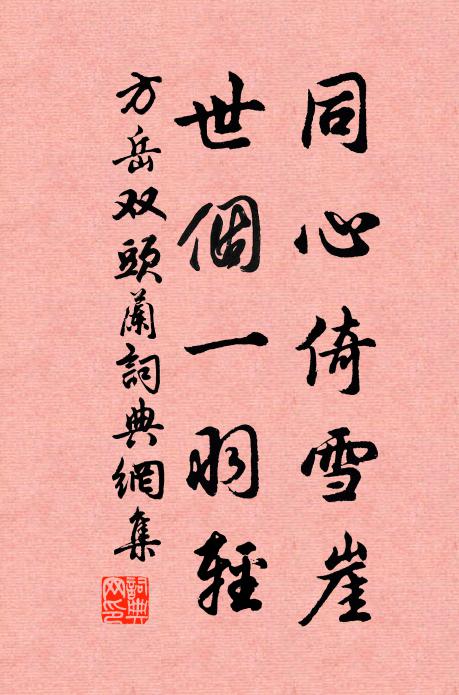 同心倚雪崖
世個一羽輕
方岳双頭蘭詞典網集
詞典網印